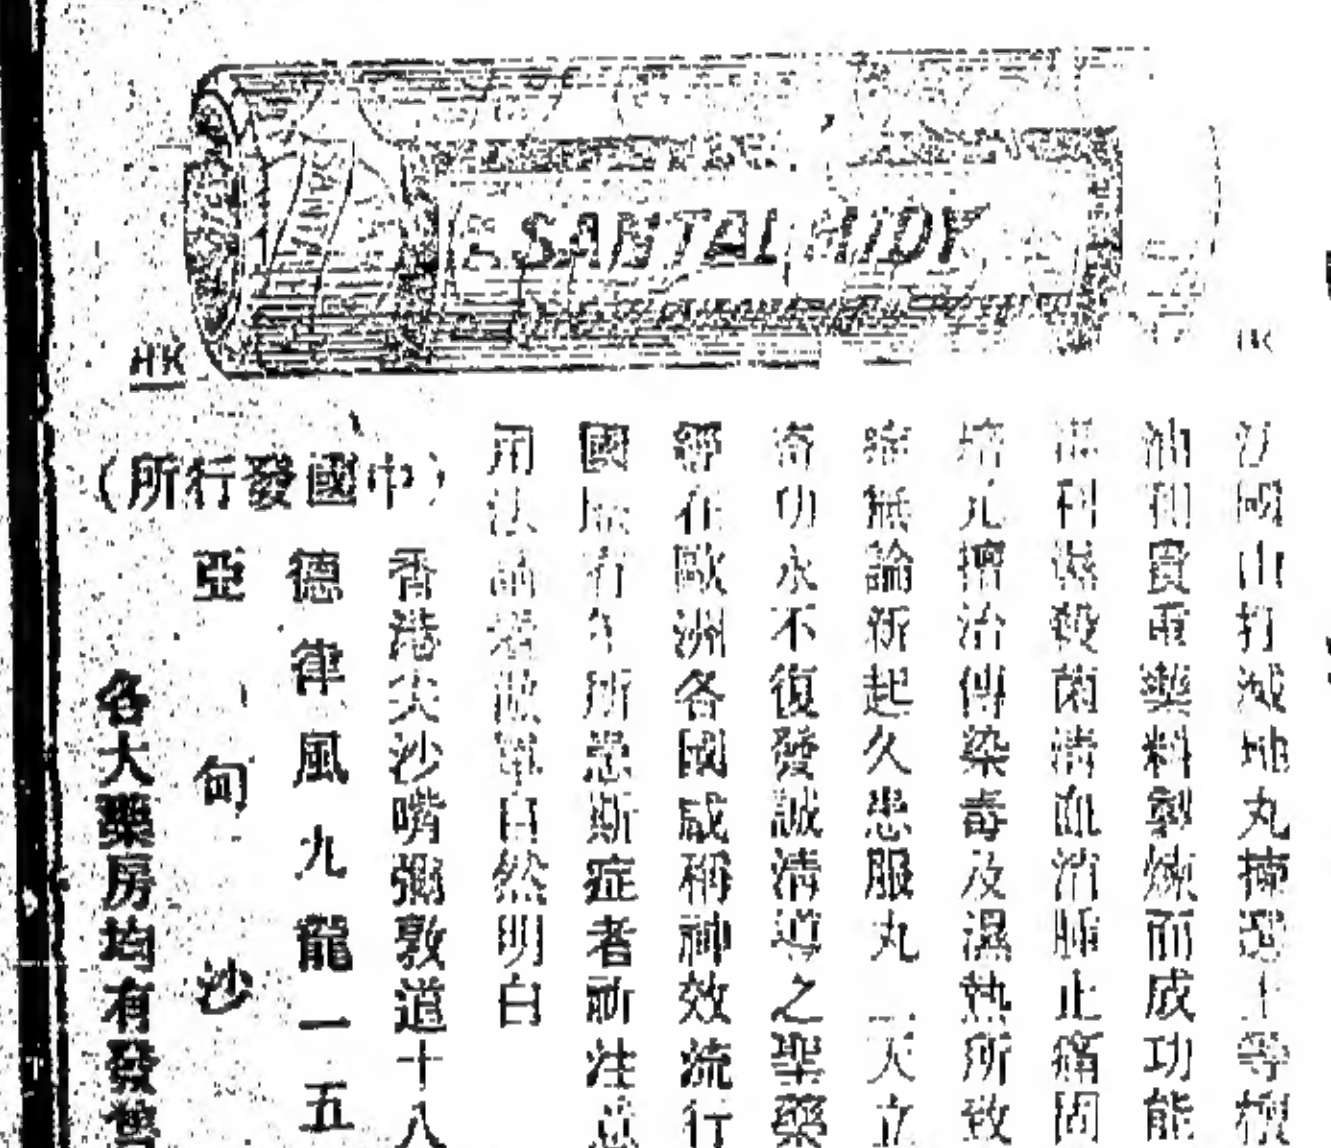 SANTAL MIDY
HK
法國山打滅地丸揀選上等檀
油和貴重藥料製煉而成功能
利濕殺菌清血消腫止痛固
培元擅治傳染毒及濕熱所致
症無論新起久患服丸一天立
奇功永不復發誠清導之聖藥
經在歐洲各國咸稱神效流行
國有年所患斯症者祈注意
用法請看倣單自然明白
(中國發行所)
香港尖沙嘴彌敦道十八
德律風九龍一五
亞甸沙
各大藥房均有發售